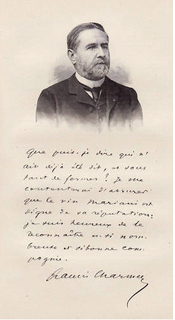 Que puis-je dire qui n'
ait déjà été dit, et sous
tant de formes? Je me
contenterai d'assurer
que le vin Mariani est
digne de sa réputation;
je suis heureux de le
reconnaître en si nom-
breuse et si bonne com-
pagnie.
Francis Charmes